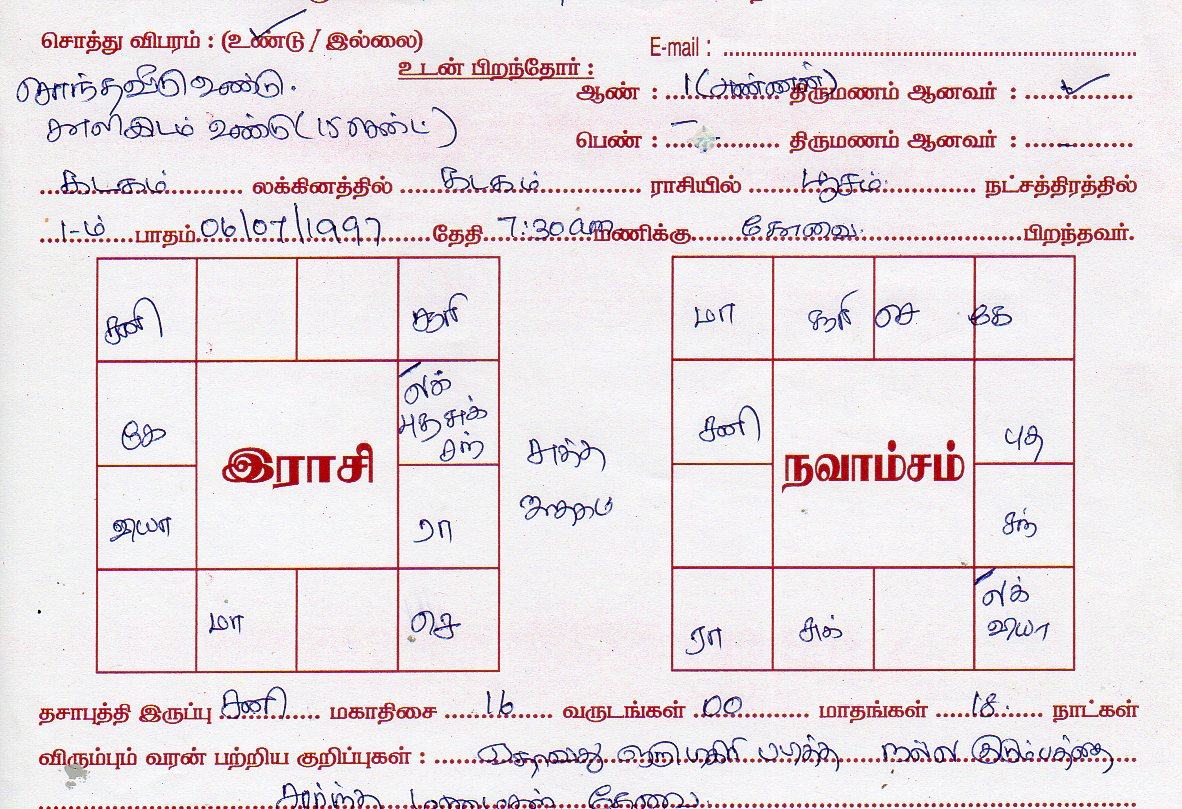 சொத்து விபரம் : (உண்டு / இல்லை)
E-mail :
சொந்தவீடு உண்டு.
உடன் பிறந்தோர் :
ஆண் : 1 (அண்ணன்) திருமணம் ஆனவர் : ✓
காலிஇடம் உண்டு (15 சென்ட்)
பெண் : – திருமணம் ஆனவர் : –
கடகம் லக்கினத்தில் கடகம் ராசியில் பூசம் நட்சத்திரத்தில்
1-ம் பாதம் 06/07/1997 தேதி 7:30am மணிக்கு கோவை பிறந்தவர்.
சனி
சூரி
கே
லக்
புத சுக்
சந்
இராசி
வியா
ரா
மா
செ
சுத்த
மா
சூரி
செ
கே
சனி
புத
நவாம்சம்
சந்
ரா
சுக்
லக்
வியா
தசாபுத்தி இருப்பு சனி மகாதிசை 16 வருடங்கள் 00 மாதங்கள் 18 நாட்கள்
விரும்பும் வரன் பற்றிய குறிப்புகள் : ஏதாவது ஒரு டிகிரி படித்த நல்ல குடும்பத்தை
சார்ந்த மணமகன் தேவை.